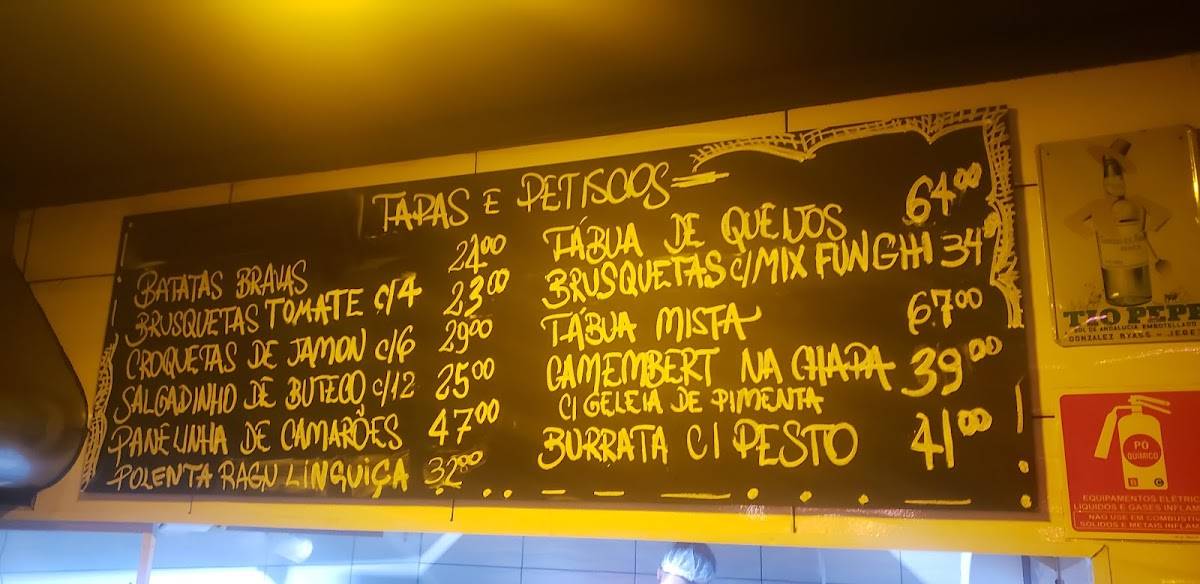 TAPAS E PETISCOS
BATATAS BRAVAS 2400
BRUSQUETAS TOMATE c/4 2300
CROQUETAS DE JAMON c/6 2900
SALGADINHO DE BUTECO c/12 2500
PANELINHA DE CAMARÕES 4700
POLENTA RAGU LINGUIÇA 3280
TÁBUA DE QUEIJOS 6400
BRUSQUETAS c/MIX FUNGHI 34
TÁBUA MISTA 67.00
CAMEMBERT NA CHAPA 3900
C/ GELEIA DE PIMENTA
BURRATA C/ PESTO 4100
TIO PEPE
SOL DE ANDALUCIA EMBOTELLADO
GONZALEZ BYASS - JEREZ
PÓ
QUÍMICO
B C
EQUIPAMENTOS ELÉTRIC
LÍQUIDOS E GASES INFLAM
NÃO USE EM COMBUST
SÓLIDOS E METAIS INFLAM